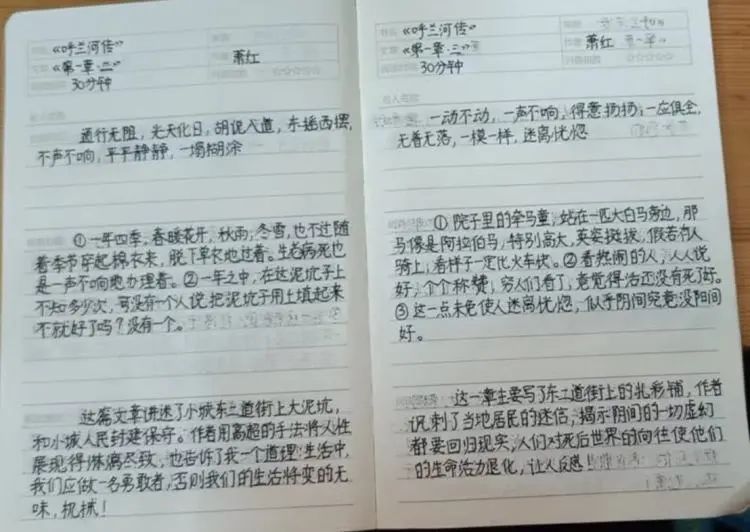 《呼兰河传》
《第一章·二》
萧红
30分钟
通行无阻,光天化日,胡说八道,东摇西摆,
不声不响,平平静静,一塌糊涂
①一年四季,春暖花开,秋雨,冬雪,也不过随
着季节穿起棉衣来,脱下单衣地过着。生老病死也
是一声不响地办理着。②一年之中,在这泥坑子上
不知多少次,可没有一个人说把泥坑子用土填起来
不就好了吗?没有一个。
这篇文章讲述了小城东二道街上大泥坑,
和小城人民封建保守。作者用高超的手法将人性
展现得淋漓尽致,也告诉了我一个道理:生活中,
我们应做一名勇敢者,否则我们的生活将变的无
味,机械!
《呼兰河传》
《第一章·三》
萧红
30分钟
一动不动,一声不响,得意扬扬,一应俱全,
无着无落,一模一样,迷离恍惚
①院子里的牵马童,站在一匹大白马旁边,那
马像是阿拉伯马,特别高大,英姿挺拔,假若有人
骑上,看样子一定比火车快。②看热闹的人,人人说
好,个个称赞,穷人们看了,竟觉得活还没有死了好。
③这一点未免使人迷离恍惚,似乎阴间究竟没阳间
好。
这一章主要写了东二道街上的扎彩铺,作者
讽刺了当地居民的迷信,揭示阴间的一切虚幻
都要回归现实,人们对死后世界的向往使他们
的生命活力退化,让人反感!